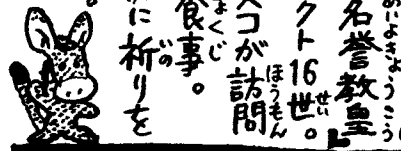 名誉教皇
めいよきょうこう
クト16世。
せい
スコが訪問
ほうもん
食事。
ょくじ
に祈りを
いの